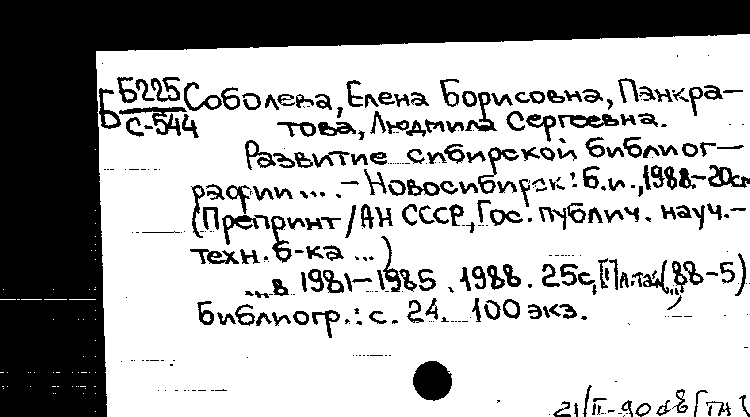 Б Б225 Соболева, Елена Борисовна, Панкра-
С-544 това, Людмила Сергеевна.
Развитие сибирской библиог-
рафии ... . - Новосибирск : Б.и., 1988.-20см
(Препринт / АН СССР, Гос. публич. науч.-
техн. б-ка ... )
...в 1981-1985 . 1988. 25с, (88-5)
Библиогр.: с. 24. 100 экз.
21/II-90